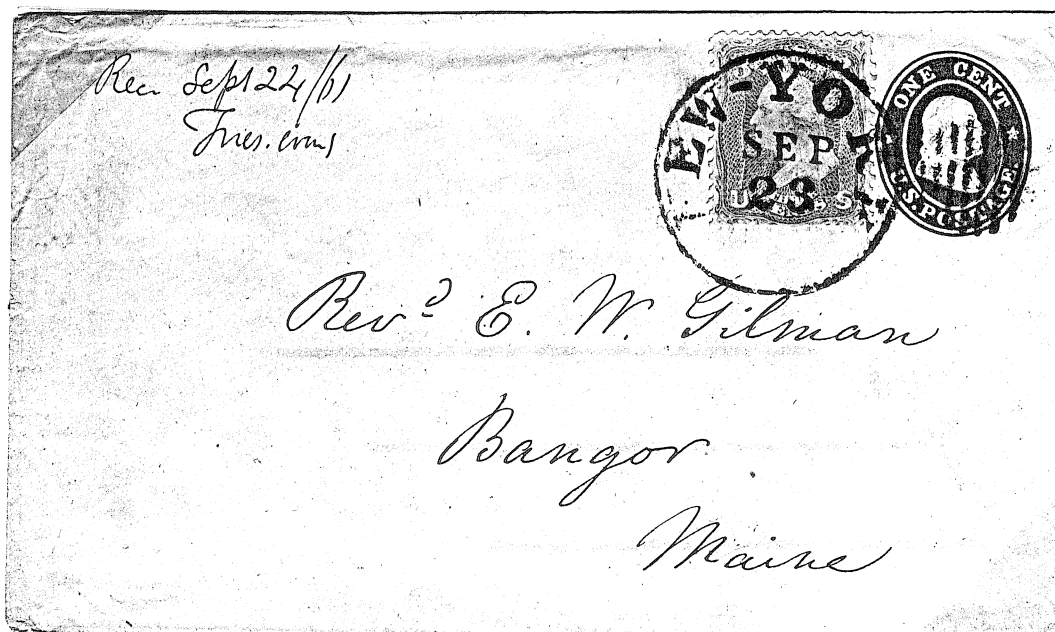 Rec. Sept 24/61
Tues. evng
EW-YOR
SEP
23
U S
ONE CENT
U.S. POSTAGE.
Revd E. W. Gilman
Bangor
Maine